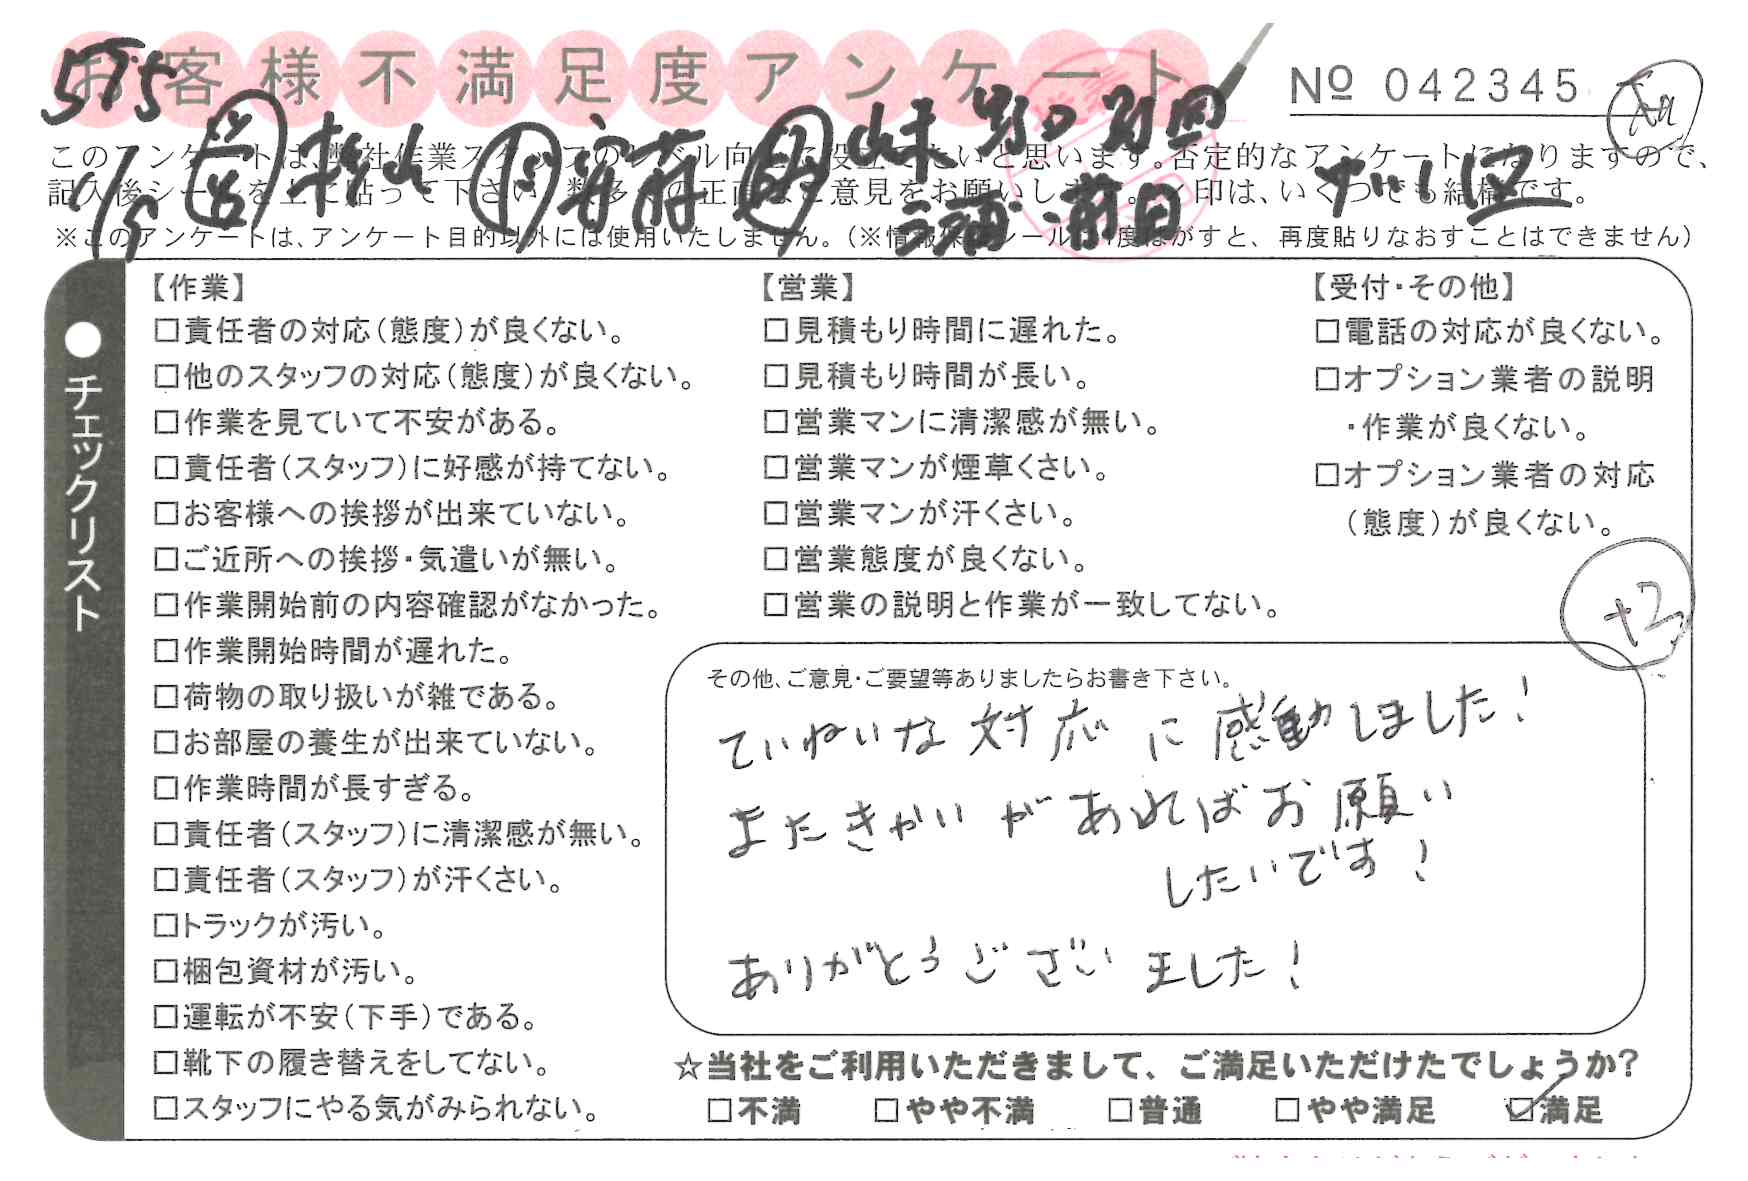 お客様不満足度アンケート
Nº 042345
575
11/5 営 松山 作 安蒜 助 山本 野口 別回 中川区
三浦 蒲田
このアンケートは、弊社作業スタッフのレベル向上に役立てたいと思います。否定的なアンケートになりますので、
記入後シールを上に貼って下さい。数多くの正直なご意見をお願いします。✓印は、いくつでも結構です。
※このアンケートは、アンケート目的以外には使用いたしません。（※情報保護シールは1度はがすと、再度貼りなおすことはできません）
●チェックリスト
【作業】
□責任者の対応（態度）が良くない。
□他のスタッフの対応（態度）が良くない。
□作業を見ていて不安がある。
□責任者（スタッフ）に好感が持てない。
□お客様への挨拶が出来ていない。
□ご近所への挨拶・気遣いが無い。
□作業開始前の内容確認がなかった。
□作業開始時間が遅れた。
□荷物の取り扱いが雑である。
□お部屋の養生が出来ていない。
□作業時間が長すぎる。
□責任者（スタッフ）に清潔感が無い。
□責任者（スタッフ）が汗くさい。
□トラックが汚い。
□梱包資材が汚い。
□運転が不安（下手）である。
□靴下の履き替えをしてない。
□スタッフにやる気がみられない。
【営業】
□見積もり時間に遅れた。
□見積もり時間が長い。
□営業マンに清潔感が無い。
□営業マンが煙草くさい。
□営業マンが汗くさい。
□営業態度が良くない。
□営業の説明と作業が一致してない。
【受付・その他】
□電話の対応が良くない。
□オプション業者の説明
・作業が良くない。
□オプション業者の対応
（態度）が良くない。
+3
その他、ご意見・ご要望等ありましたらお書き下さい。
ていねいな対応に感動しました！
またきかいがあればお願い
したいです！
ありがとうございました！
☆当社をご利用いただきまして、ご満足いただけたでしょうか？
□不満 □やや不満 □普通 □やや満足 ☑満足